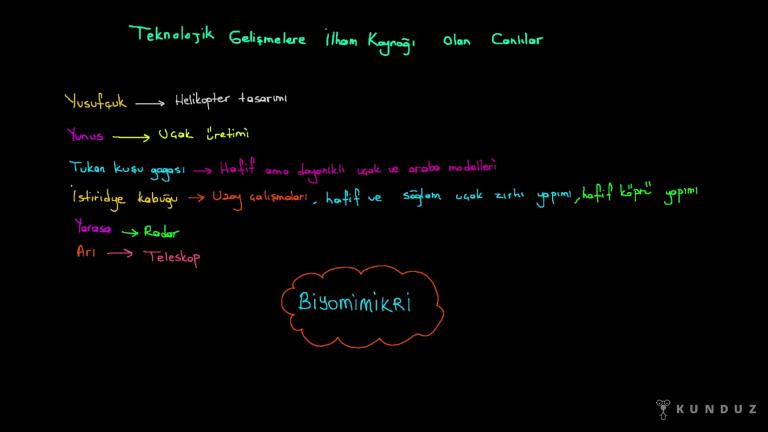 Teknolojik Gelişmelere İlham Kaynağı Olan Canlılar
Yusufçuk → Helikopter tasarımı
Yunus → Uçak üretimi
Tukan kuşu gagası → Hafif ama dayanıklı uçak ve araba modelleri
İstiridye kabuğu → Uzay çalışmaları, hafif ve sağlam uçak zırhı yapımı, hafif köprü yapımı
Yarasa → Radar
Arı → Teleskop
BİYOMİMİKRİ
KUNDUZ